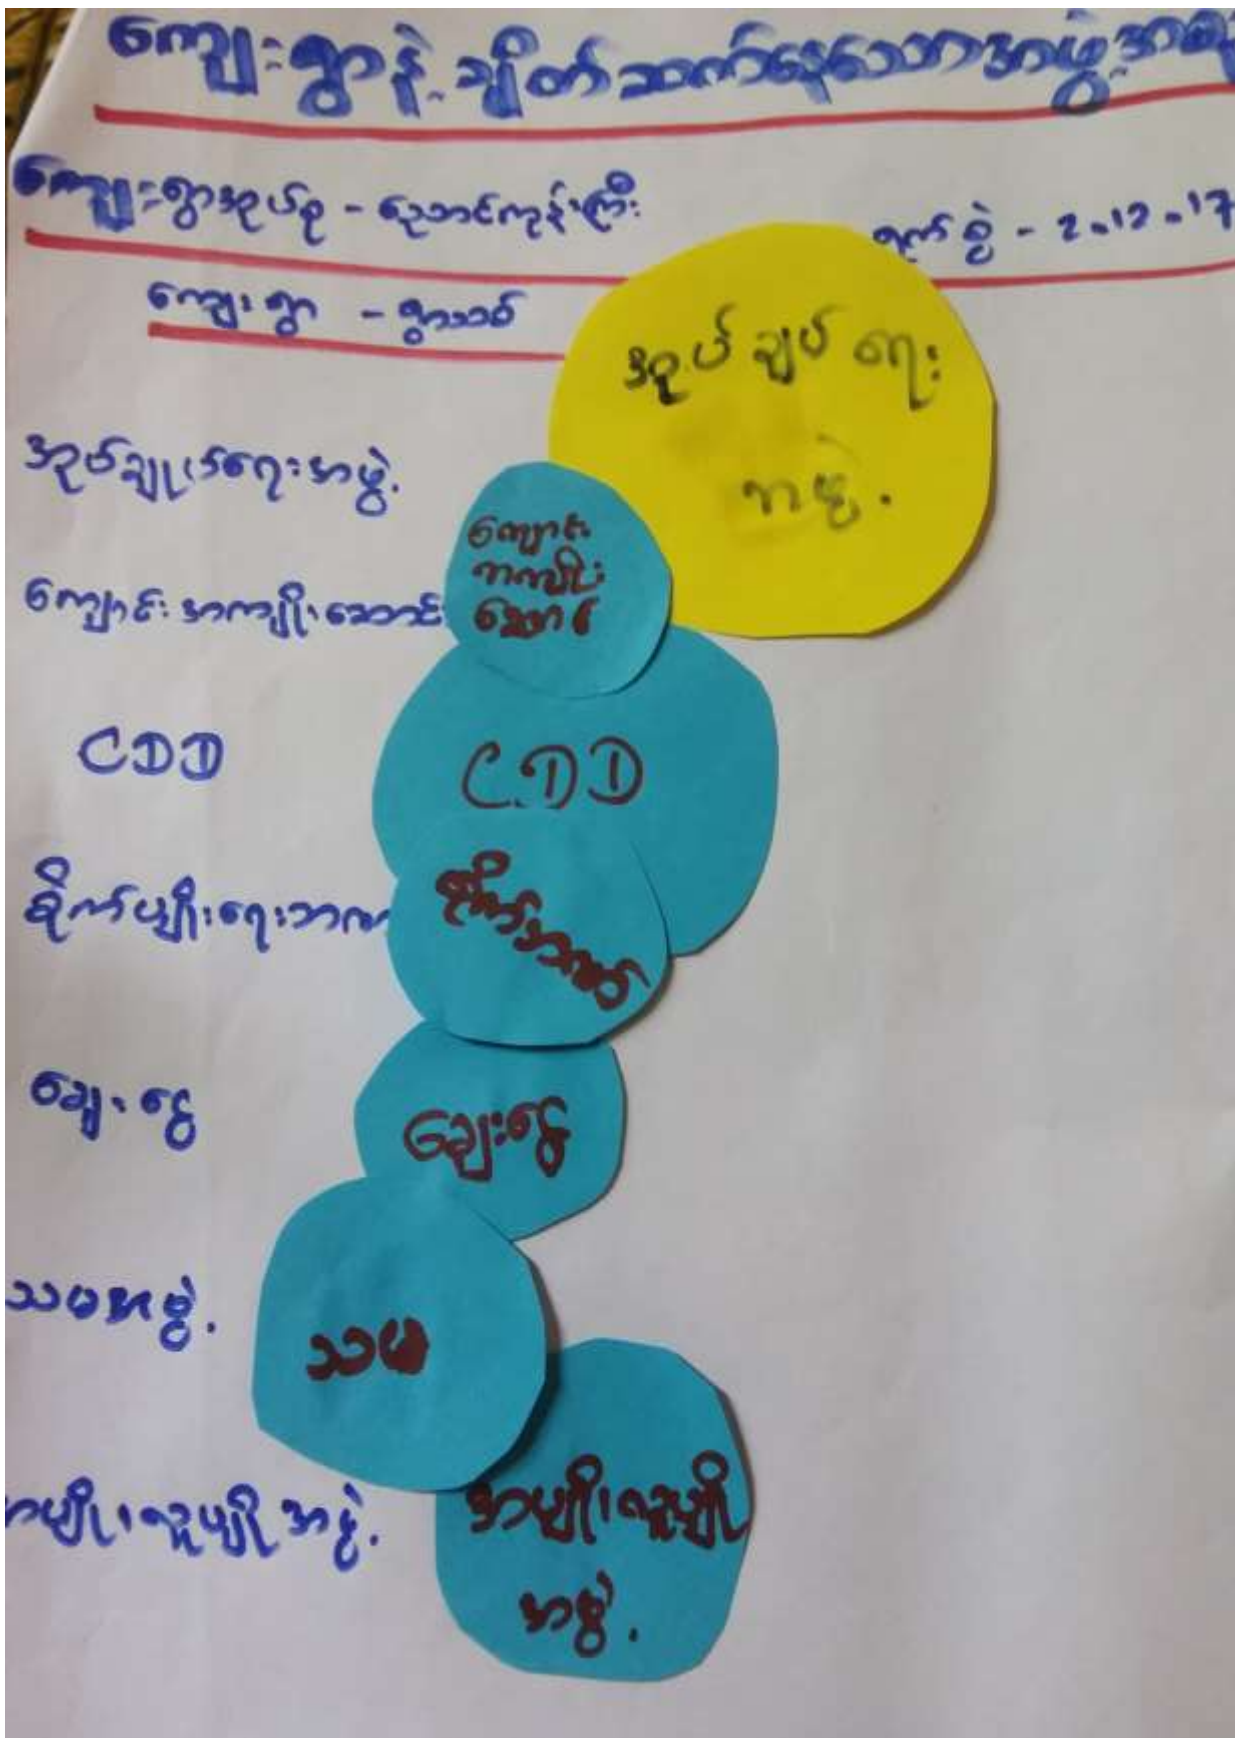 ကျေးရွာနဲ့ ချိတ်ဆက်နေသောအဖွဲ့အစည်း
ကျေးရွာအုပ်စု - ညောင်ကုန်းကြီး
ရက်စွဲ - 2.12.17
ကျေးရွာ - ရွာသစ်
အုပ်ချုပ်ရေးအဖွဲ့.
အုပ်ချုပ်ရေး
အဖွဲ့.
ကျောင်းအကျိုးဆောင်
ကျောင်း
အကျိုး
ဆောင်
CDD
CDD
စိုက်ပျိုးရေးဘဏ်
စိုက်ဘဏ်
ချေးငွေ
ချေးငွေ
သမအဖွဲ့.
သမ
လူပျိုအဖွဲ့.
အပျိုလူပျို
အဖွဲ့.